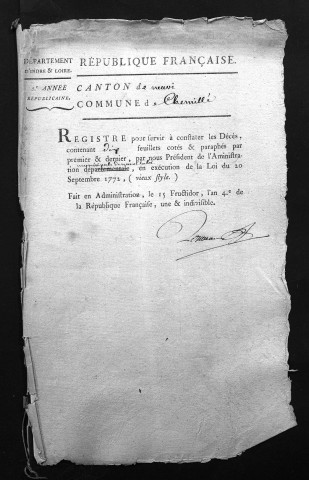 DÉPARTEMENT
D'INDRE & LOIRE.
RÉPUBLIQUE FRANÇAISE.
ANNÉE
RÉPUBLICAINE,
CANTON de neuvi
COMMUNE de Chemillé
REGISTRE pour servir à constater les Décès,
contenant dix feuillets cotés & paraphés par
premier & dernier, par nous Président de l'Aministra-
tion départementale, en exécution de la Loi du 20
Septembre 1772, ( vieux style. )
Fait en Administration, le 15 Fructidor, l'an 4.e de
la République Française, une & indivisible.